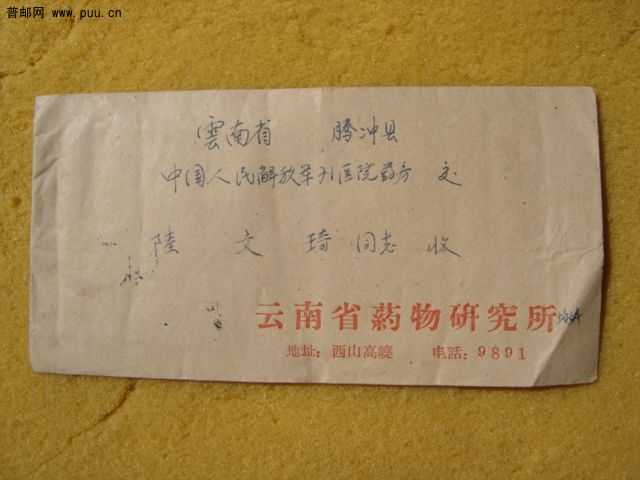 普邮网 www.puu.cn
雲南省 腾冲县
中国人民解放军71医院药房 交
陸文琦 同志 收
云南省药物研究所
地址：西山高嶢 电話：9891